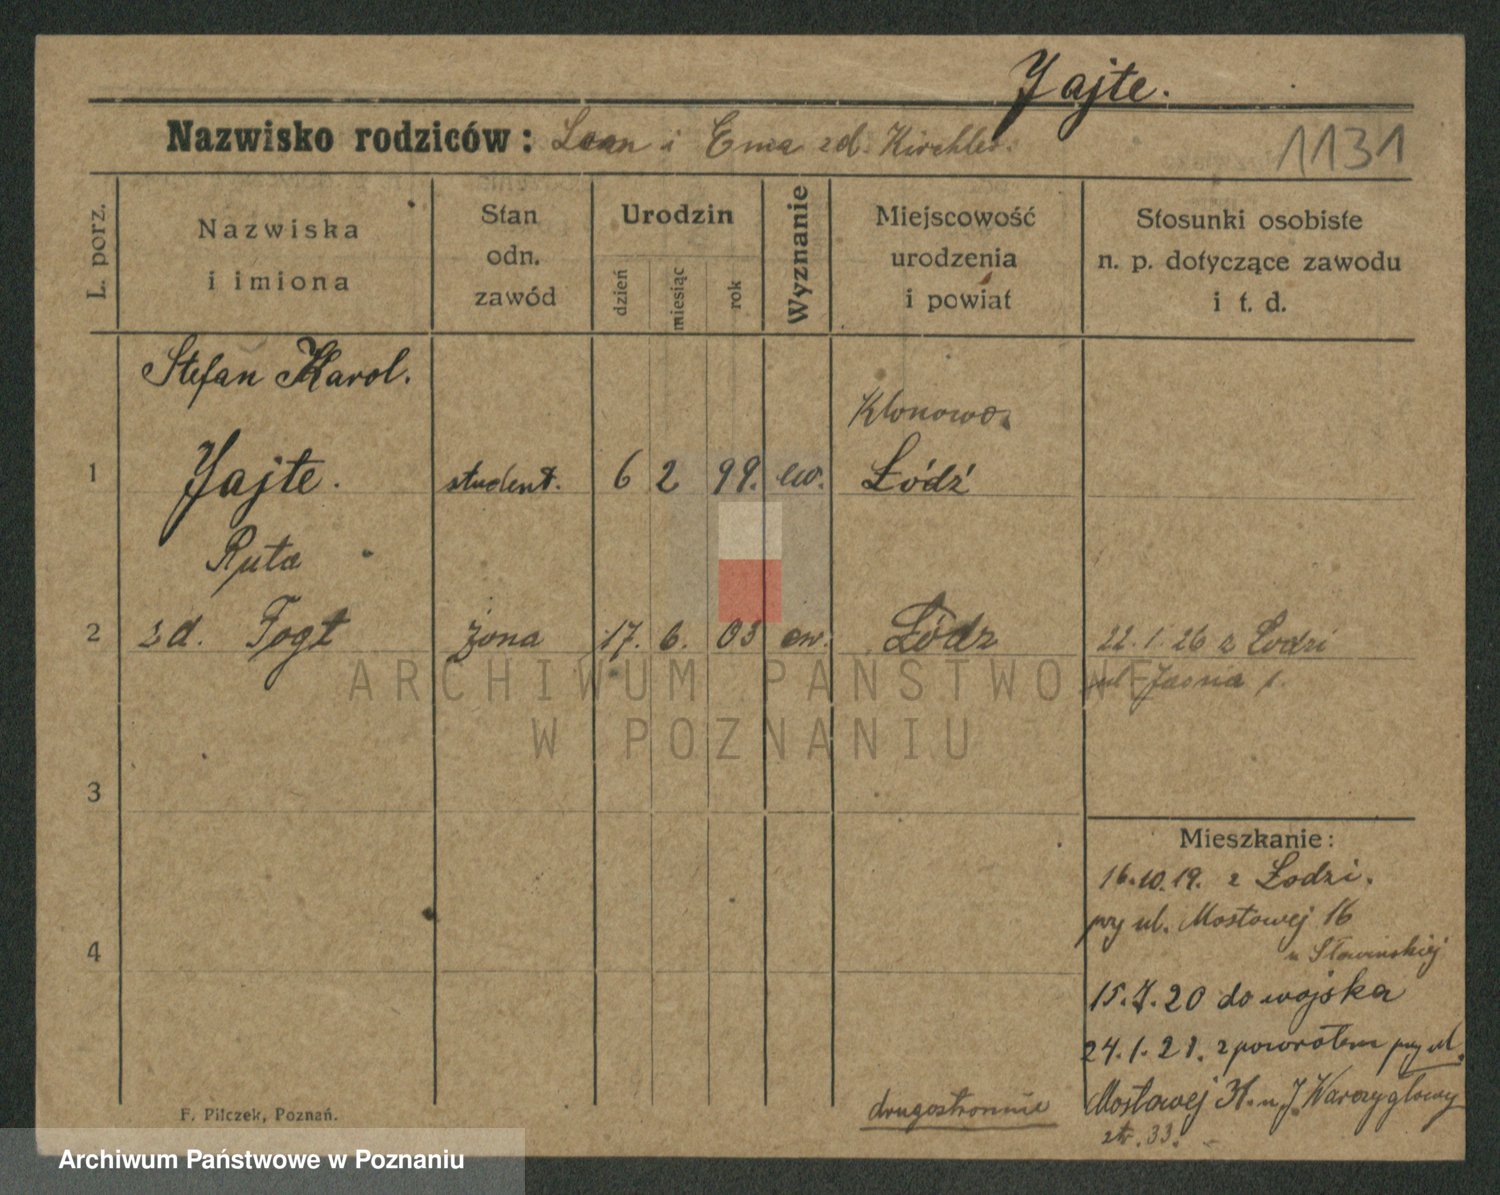 Yajte.
Nazwisko rodziców: Lean i Ema zd. Kirchler.
1131
L. porz.
Nazwiska
i imiona
Stan
odn.
zawód
Urodzin
dzień
miesiąc
rok
Wyznanie
Miejscowość
urodzenia
i powiat
Stosunki osobiste
n. p. dotyczące zawodu
i t. d.
Stefan Karol.
Klonowa
1 Yajte. student. 6 2 99. ew. Łódź
Ruta
2 zd. Fogt żona 17. 6. 03 ew. Łódz 22.1.26 z Łodzi
ul Jasna 1.
3
4
Mieszkanie:
16.10.19. z Łodzi.
przy ul. Mostowej 16
u Sławińskiej
15.7.20 do wojska
24.1.21. z powrotem przy ul.
Mostowej 31. u J. Warzygłowy
str. 33.
drugostronnie
F. Pilczek, Poznań.
ARCHIWUM PAŃSTWOWE
W POZNANIU
Archiwum Państwowe w Poznaniu